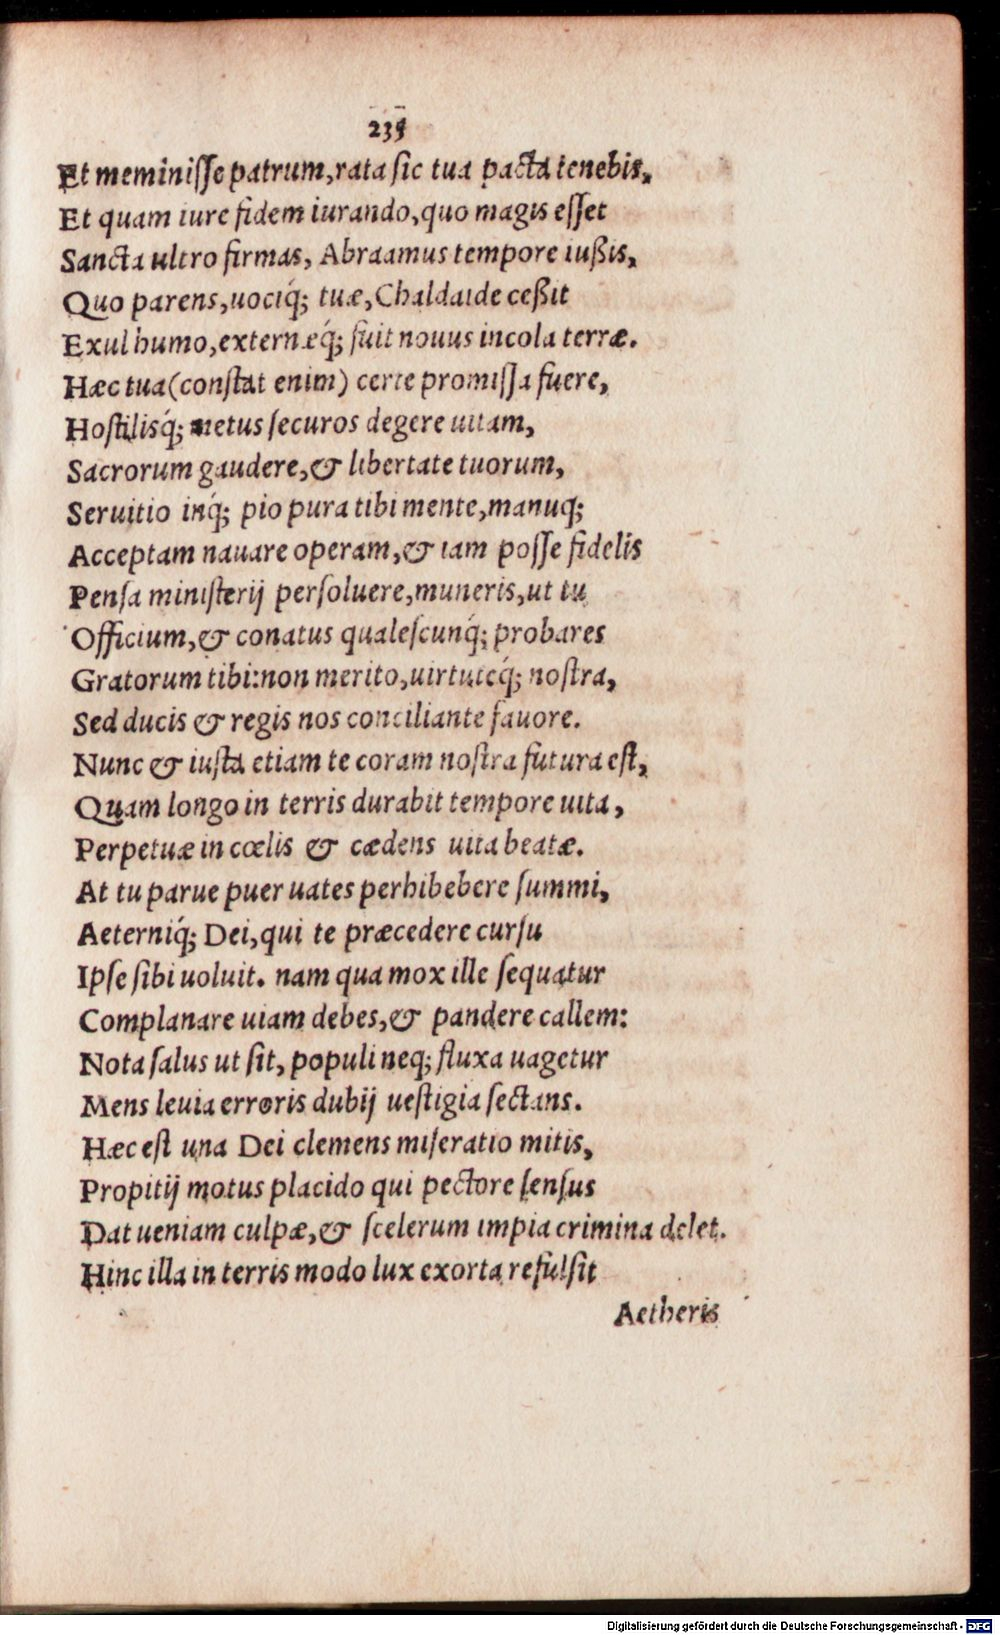 235
Et meminiſſe patrum,rata ſic tua pacta tenebis,
Et quam iure fidem iurando,quo magis eſſet
Sancta ultro firmas, Abraamus tempore iußis,
Quo parens,uociq́; tuæ,Chaldaide ceßit
Exul humo,externæq́; fuit nouus incola terræ.
Hæc tua(conſtat enim) certe promiſſa fuere,
Hoſtilisq́; metus ſecuros degere uitam,
Sacrorum gaudere,& libertate tuorum,
Seruitio inq́; pio pura tibi mente,manuq;
Acceptam nauare operam,& iam poſſe fidelis
Penſa miniſterij perſoluere,muneris,ut tu
Officium,& conatus qualeſcunq́; probares
Gratorum tibi:non merito,uirtuteq́; noſtra,
Sed ducis & regis nos conciliante fauore.
Nunc & iuſta etiam te coram noſtra futura eſt,
Quam longo in terris durabit tempore uita,
Perpetuæ in cœlis & cædens uita beatæ.
At tu parue puer uates perhibebere ſummi,
Aeterniq́; Dei,qui te præcedere curſu
Ipſe ſibi uoluit. nam qua mox ille ſequatur
Complanare uiam debes,& pandere callem:
Nota ſalus ut ſit, populi neq; fluxa uagetur
Mens leuia erroris dubij ueſtigia ſectans.
Hæc eſt una Dei clemens miſeratio mitis,
Propitij motus placido qui pectore ſenſus
Dat ueniam culpæ,& ſcelerum impia crimina delet.
Hinc illa in terris modo lux exorta refulſit
Aetheris
Digitalisierung gefördert durch die Deutsche Forschungsgemeinschaft - DFG